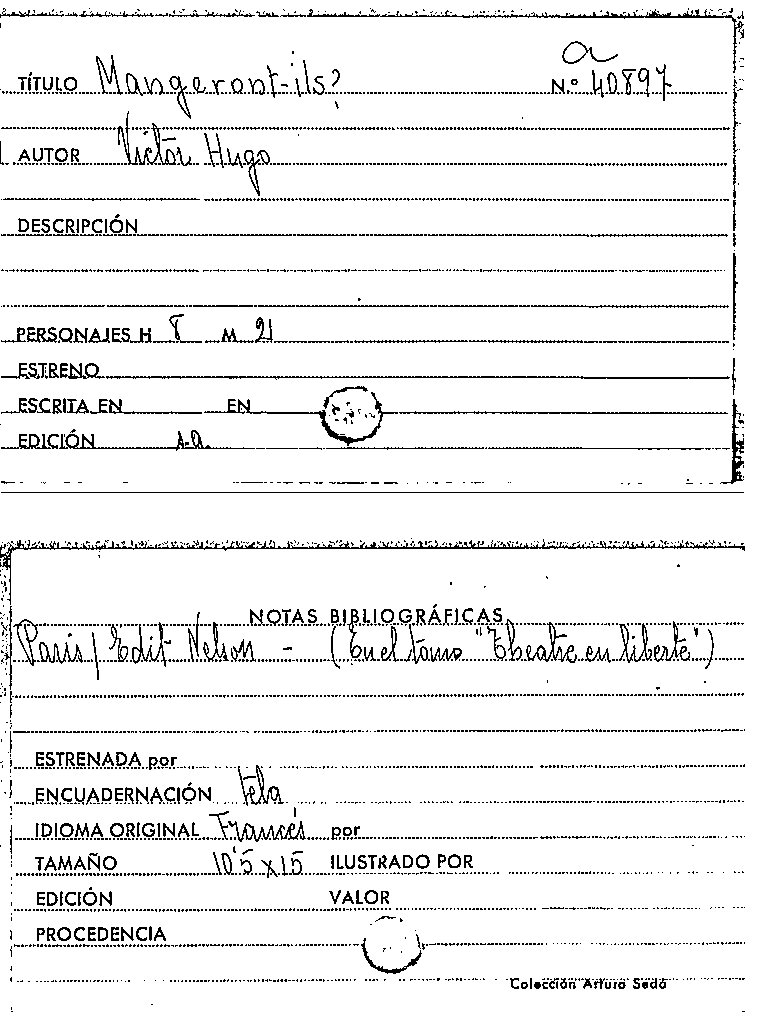 a
TÍTULO Mangeront-ils? N.º 40897
AUTOR Victor Hugo
DESCRIPCIÓN
PERSONAJES H 8 M 21
ESTRENO
ESCRITA EN EN
EDICIÓN s.a.
NOTAS BIBLIOGRÁFICAS
Paris / Edit Nelson - (En el tomo "Theatre en liberté")
ESTRENADA por
ENCUADERNACIÓN tela
IDIOMA ORIGINAL Francés por
TAMAÑO 10'5 x 15 ILUSTRADO POR
EDICIÓN VALOR
PROCEDENCIA
Colección Arturo Sedó